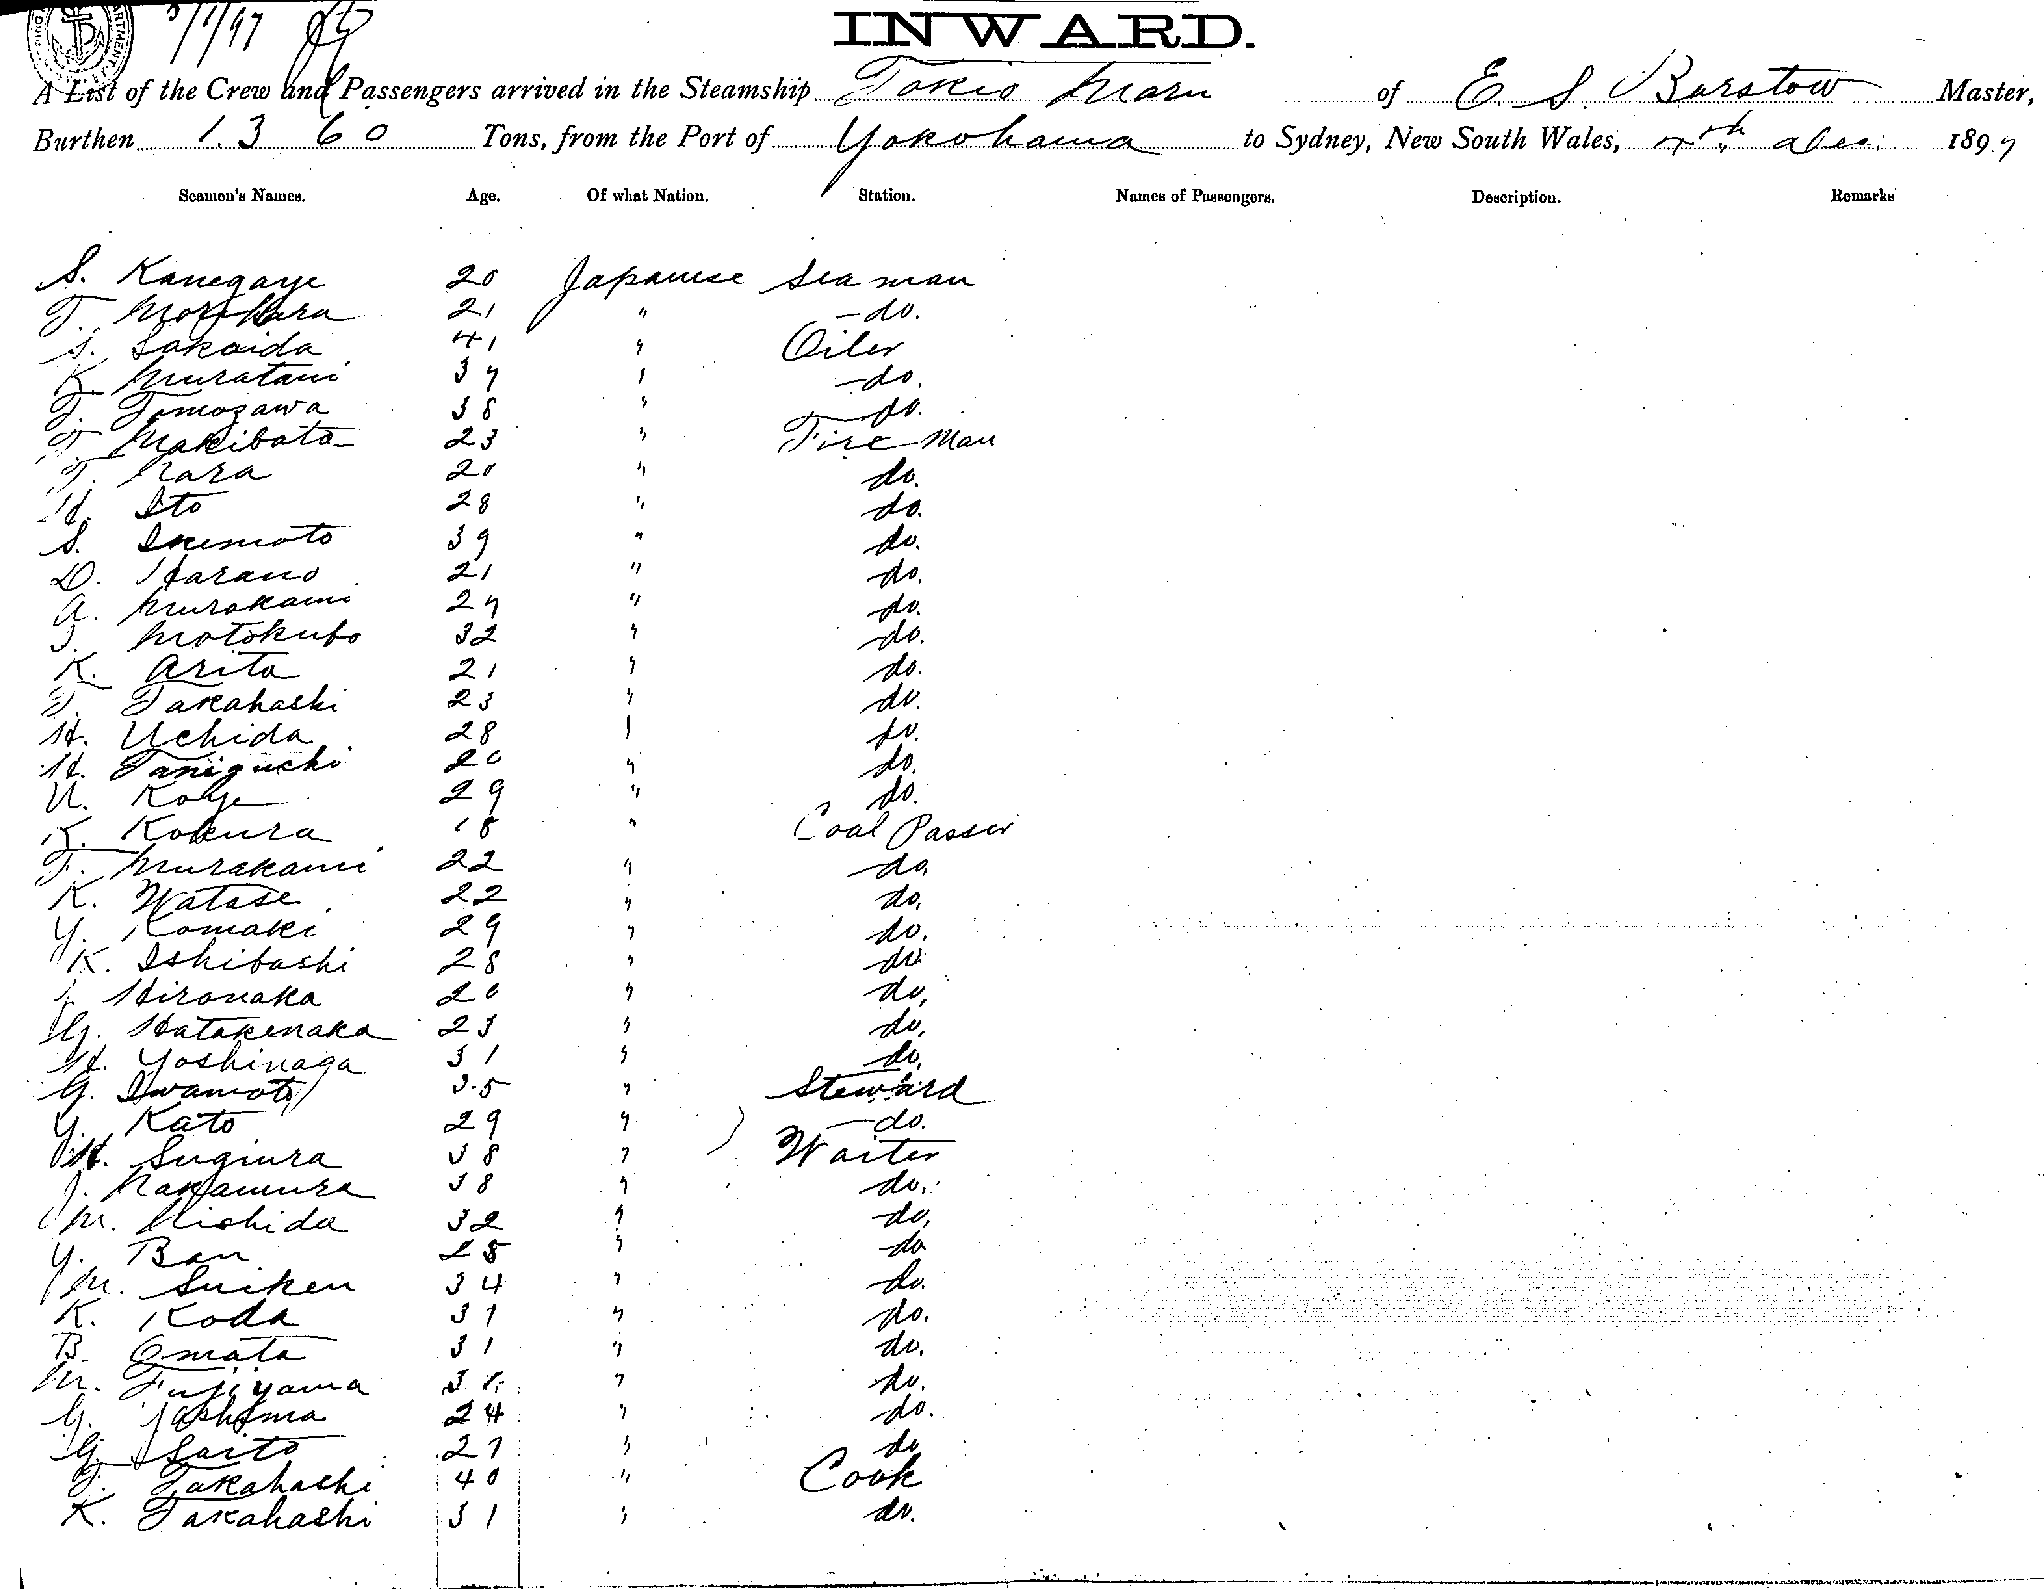 3/1/97
INWARD.
A List of the Crew and Passengers arrived in the Steamship Tokio Maru of E. S. Barstow Master,
Burthen 1360 Tons, from the Port of Yokohama to Sydney, New South Wales, 7th Dec. 1897
Seamen's Names. Age. Of what Nation. Station. Names of Passengers. Description. Remarks
S. Kanegaye 20 Japanese Seaman
T. Morohara 21 " -do.
S. Sakaida 41 " Oiler
K. Muratani 37 " -do.
T. Tomozawa 38 " do.
T. Makibata 23 " Fire Man
T. Nara 20 " do.
H. Ito 28 " do.
S. Ikemoto 39 " do.
D. Harano 21 " do.
A. Murakami 27 " do.
I. Motokubo 32 " do.
K. Arita 21 " do.
T. Takahashi 23 " do.
H. Uchida 28 " do.
H. Taniguchi 20 " do.
U. Koye 29 " do.
K. Kokura 18 " Coal Passer
T. Murakami 22 " do.
K. Watase 22 " do.
Y. Komaki 29 " do.
K. Ishibashi 28 " do
Hironaka 20 " do,
G. Hatakenaka 23 " do,
H. Yoshinaga 31 " do,
G. Iwamoto 35 " Steward
Y. Kato 29 " -do.
H. Sugiura 38 " Waiter
J. Nakamura 38 " do.
M. Nishida 32 " do,
Y. Ban 28 " do
M. Suiken 34 " do.
K. Koda 31 " do.
B. Omata 31 " do.
M. Fujiyama " do.
G. Yashima 24 " do.
G. Saito 27 " do
T. Takahashi 40 " Cook
K. Takahashi 31 " do.